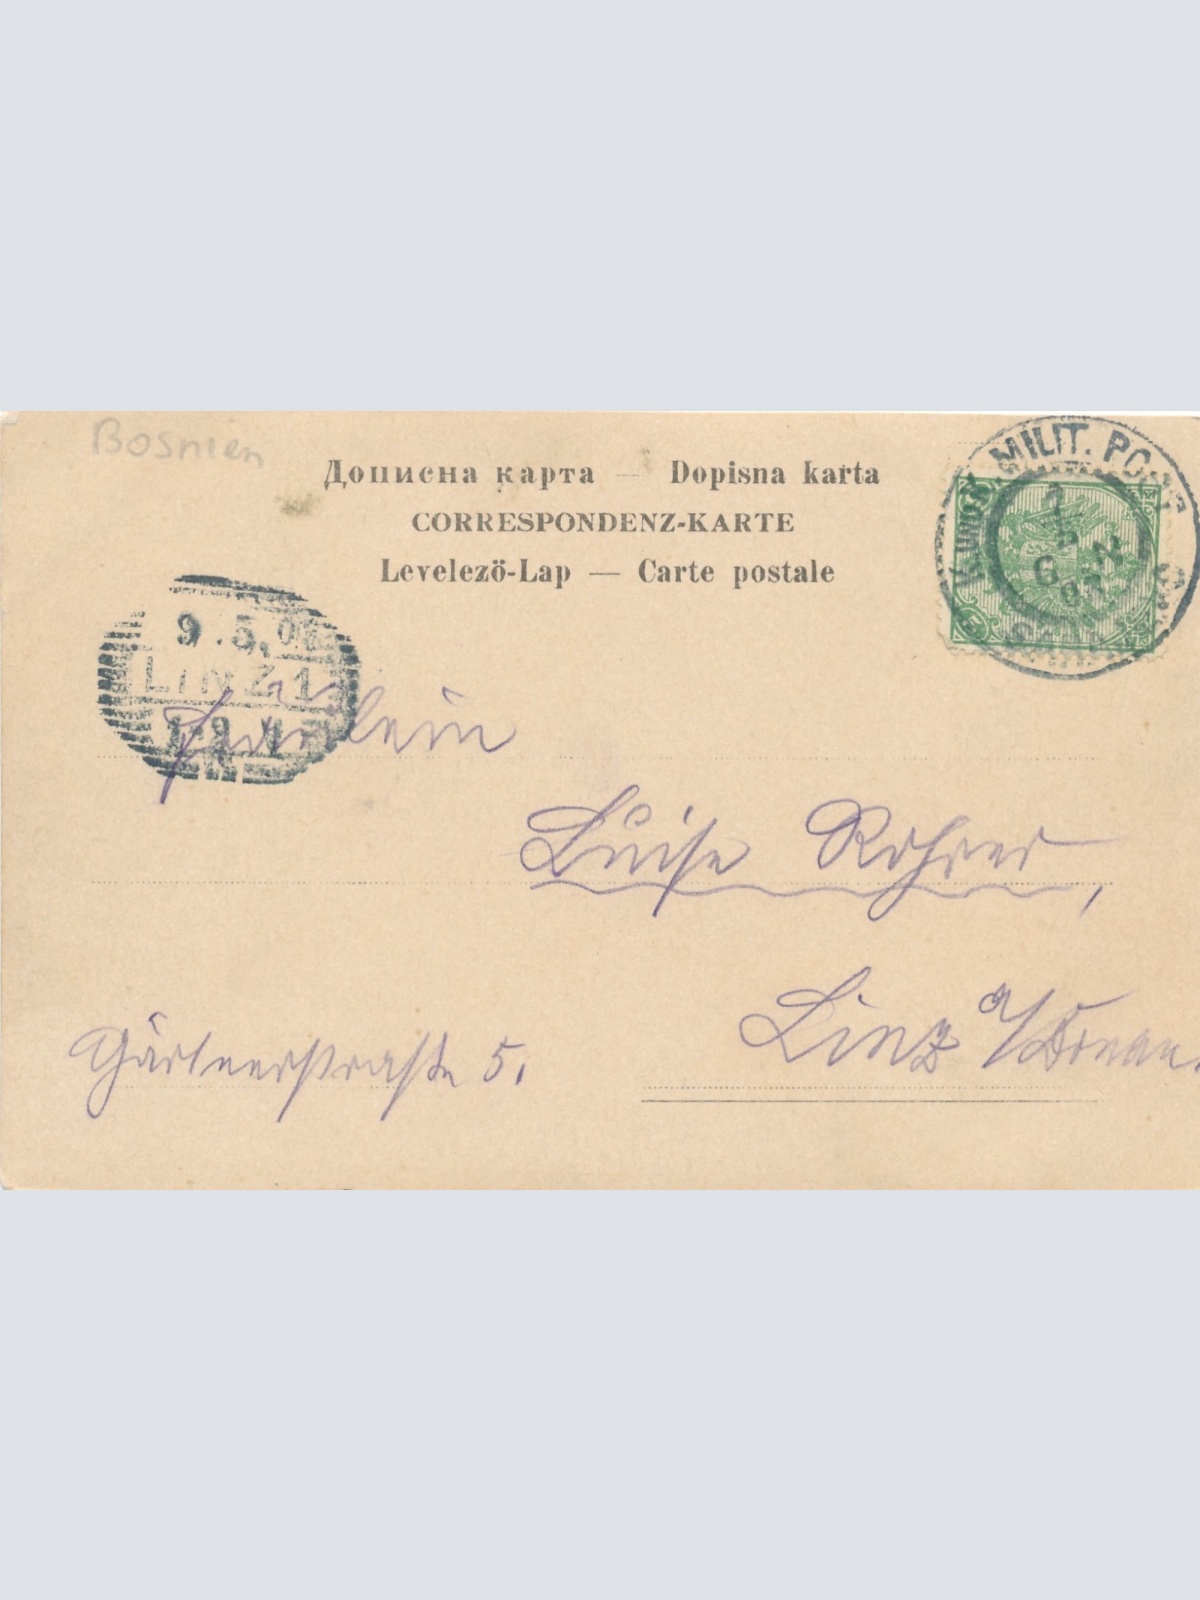 Bosnien
Дописна карта — Dopisna karta
CORRESPONDENZ-KARTE
Levelező-Lap — Carte postale
K.und K. MILIT. POST
9.5.0
LINZ 1
Fräulein
Luise Rohrer,
Linz a/Donau.
Gärtnerstraße 5.